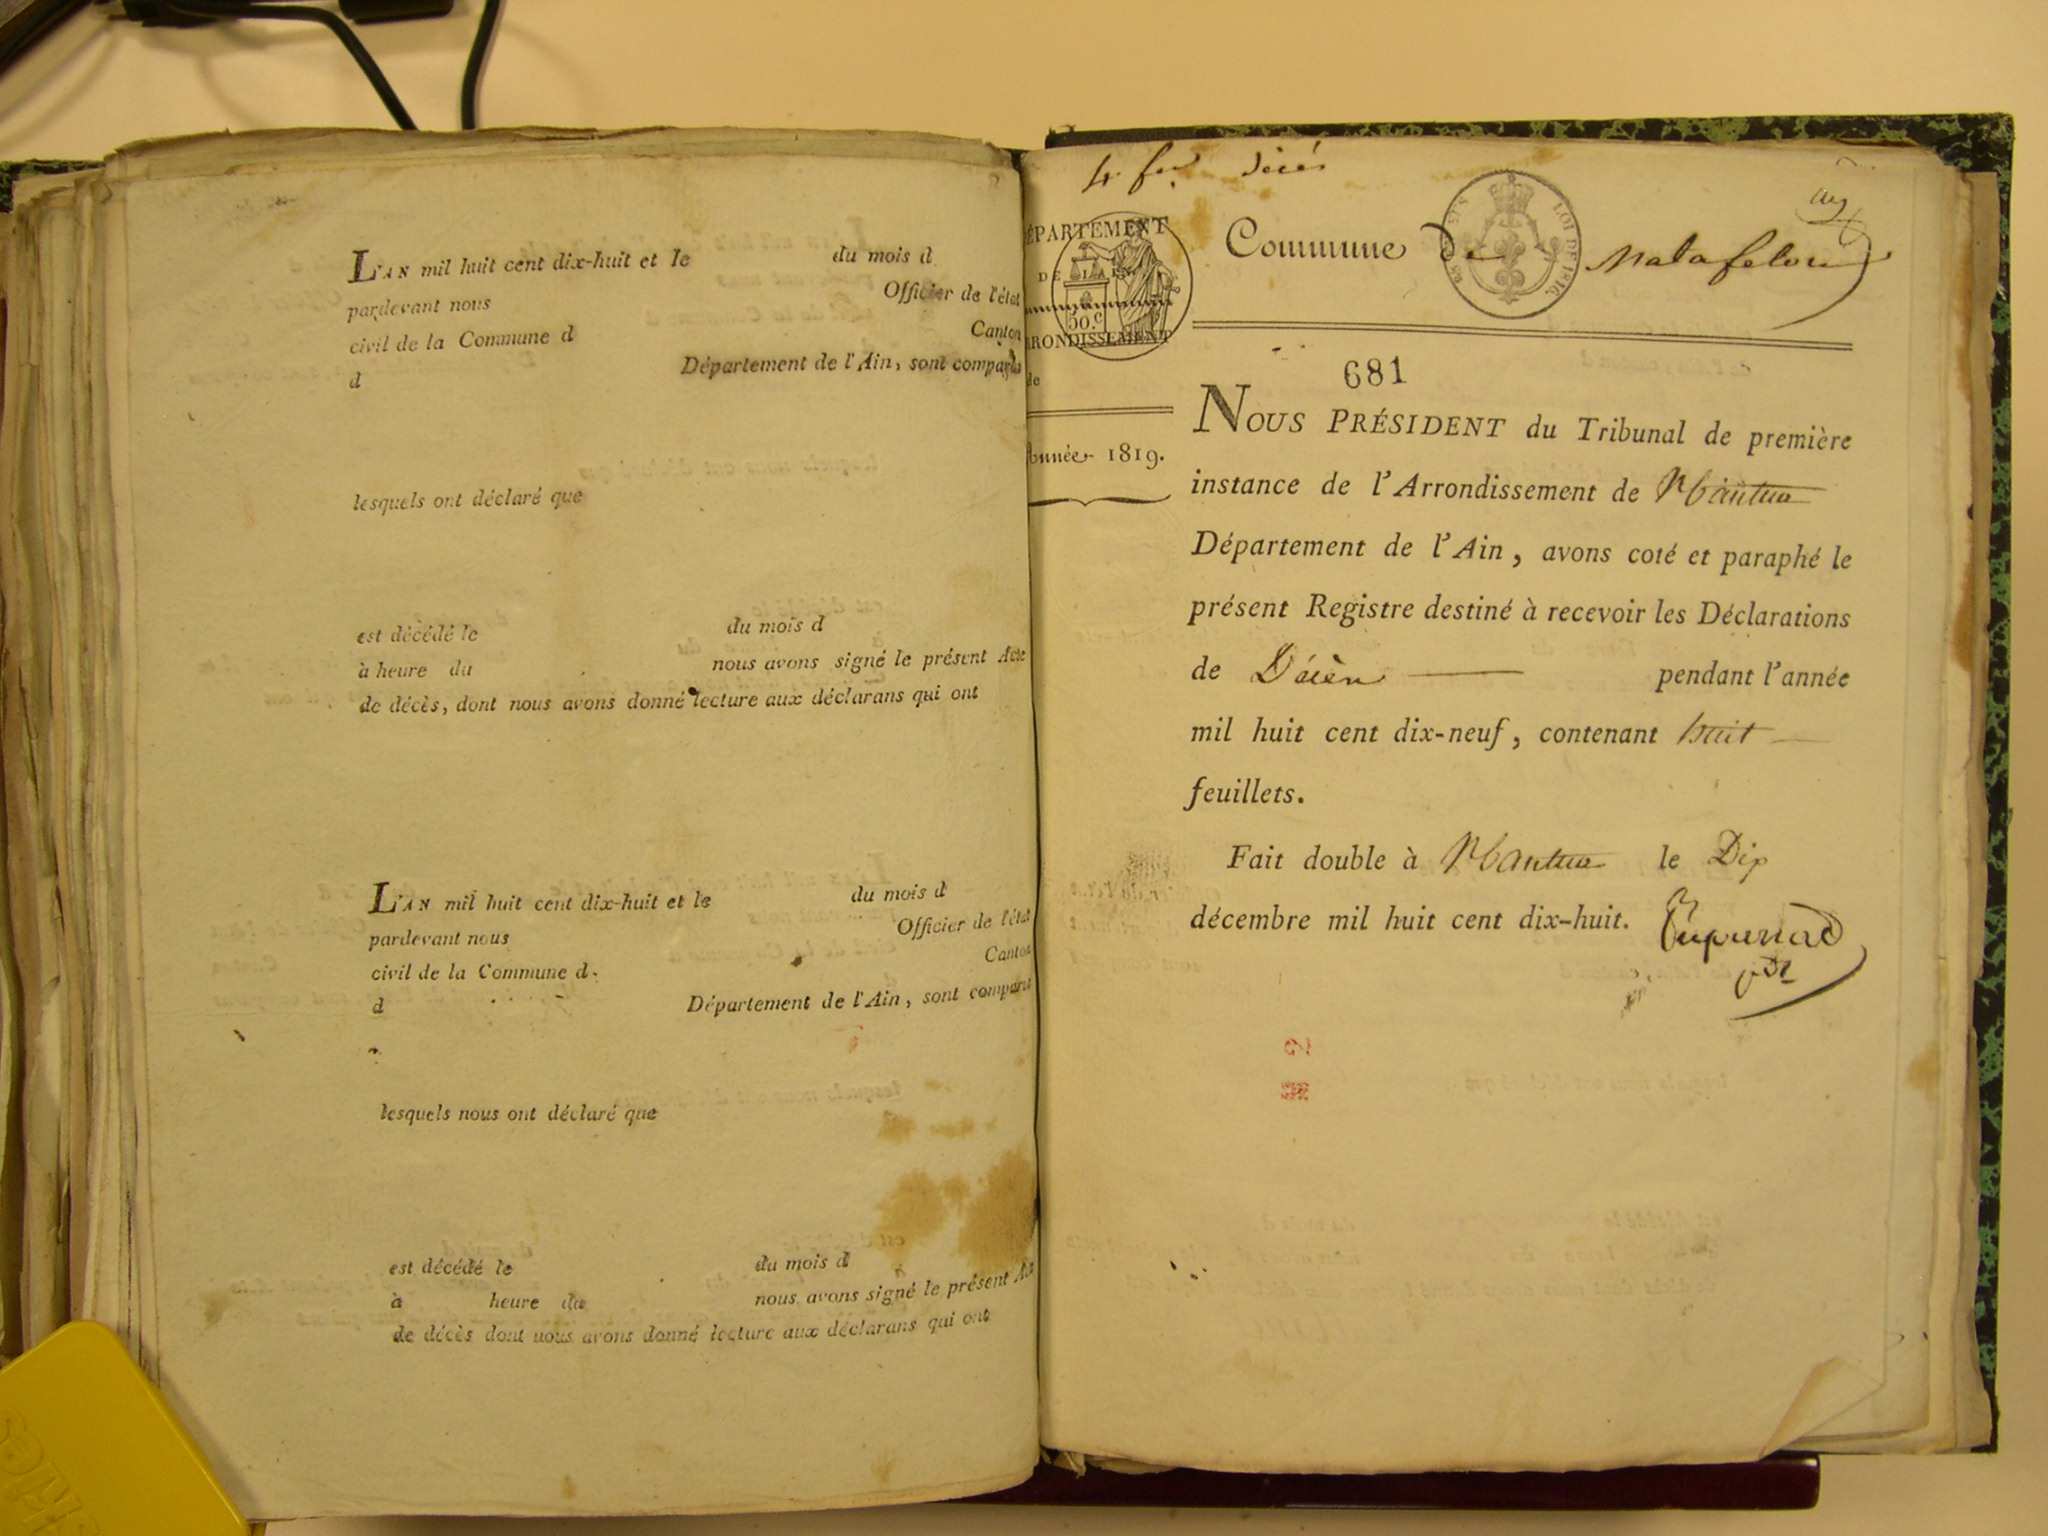 L'AN mil huit cent dix-huit et le du mois d
pardevant nous Officier de l'état
civil de la Commune d Canton
d Département de l'Ain, sont comparus
lesquels ont déclaré que
est décédé le du mois d
à heure du nous avons signé le présent Acte
de décès, dont nous avons donné lecture aux déclarans qui ont
L'AN mil huit cent dix-huit et le du mois d
pardevant nous Officier de l'état
civil de la Commune d Canton
d Département de l'Ain, sont comparus
lesquels nous ont déclaré que
est décédé le du mois d
à heure du nous avons signé le présent Acte
de décès dont nous avons donné lecture aux déclarans qui ont
4 fer décès
ÉPARTEMENT
DE L'AIN.
50.c
RONDISSEMENT
de
Année 1819.
LOI DE 1816.
Commune de Matafelon
681
NOUS PRÉSIDENT du Tribunal de première
instance de l'Arrondissement de Nantua
Département de l'Ain, avons coté et paraphé le
présent Registre destiné à recevoir les Déclarations
de Décès pendant l'année
mil huit cent dix-neuf, contenant huit
feuillets.
Fait double à Nantua le Dix
décembre mil huit cent dix-huit.